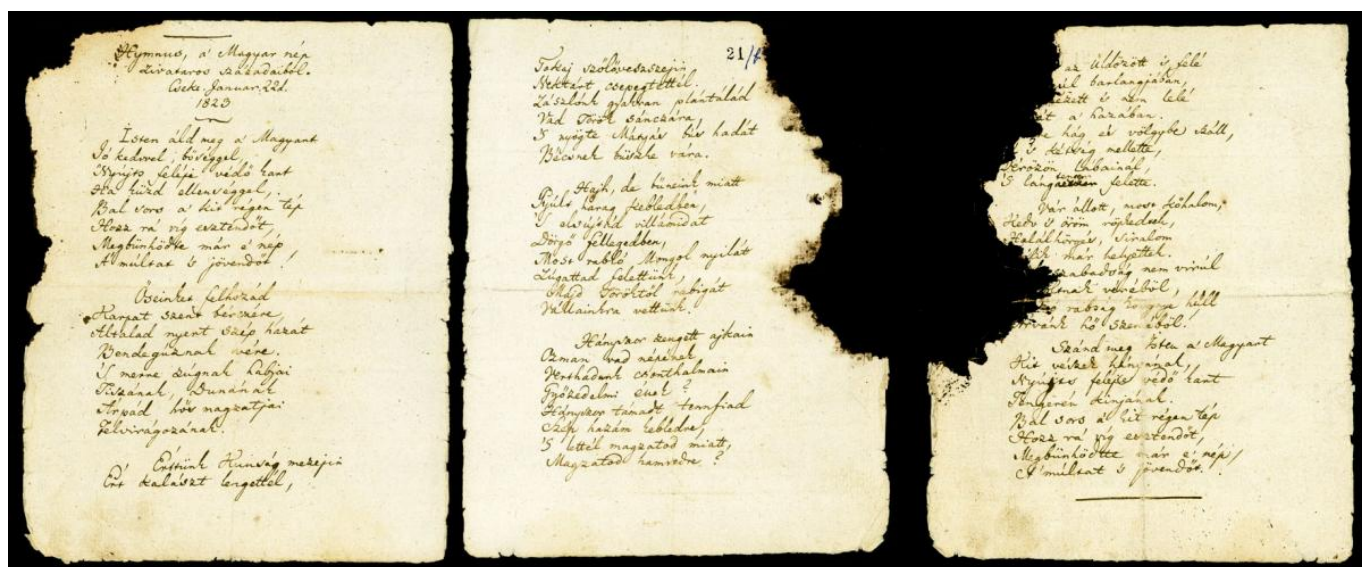 Hymnus, a' Magyar nép
zivataros századaiból.
Cseke. Januar. 22d.
1823
Isten áld meg a' Magyart
Jó kedvvel, bőséggel,
Nyújts feléje védő kart
Ha küzd ellenséggel,
Bal sors a' kit régen tép
Hozz rá víg esztendőt,
Megbűnhődte már e' nép
A' múltat 's jövendőt!
Őseinket felhozád
Kárpát szent bérczére,
Általad nyert szép hazát
Bendegúznak vére.
'S merre zúgnak habjai
Tiszának, Dunának
Árpád hős magzatjai
Felvirágozának.
Értünk Kunság mezejin
Ért kalászt lengettél,
21/
Tokaj szőlővesszejin
Nektárt csepegtettél.
Zászlónk gyakran plántálád
Vad Török sánczára,
'S nyögte Mátyás bús hadát
Bécsnek büszke vára.
Hajh, de bűneink miatt
Gyúlt harag kebledben,
'S elsújtád villámidat
Dörgő fellegedben,
Most rabló Mongol nyilát
Zúgattad felettünk,
Majd Töröktől rabigát
Vállainkra vettünk.
Hányszor zengett ajkain
Ozman vad népének
Vert hadunk csonthalmain
Győzedelmi ének?
Hányszor támadt tennfiad
Szép hazám kebledre,
'S lettél magzatod miatt,
Magzatod hamvvedre?
az üldözött 's felé
barlangjában,
's nem lelé
a' hazában.
hág és völgybe száll,
's kétség mellette,
Vérözön lábainál,
'S lángtenger felette.
Vár állott, most kőhalom,
Kedv 's öröm röpkedtek,
Halálhörgés, siralom
már helyettek.
szabadság nem virúl
véréből,
rabság könnye hull
hő szeméből!
Szánd meg Isten a' Magyart
Kit vészek hányának,
Nyújts feléje védő kart
Tengerén kínjának.
Bal sors a' kit régen tép
Hozz rá víg esztendőt,
Megbűnhődte már e' nép
A' múltat 's jövendőt!